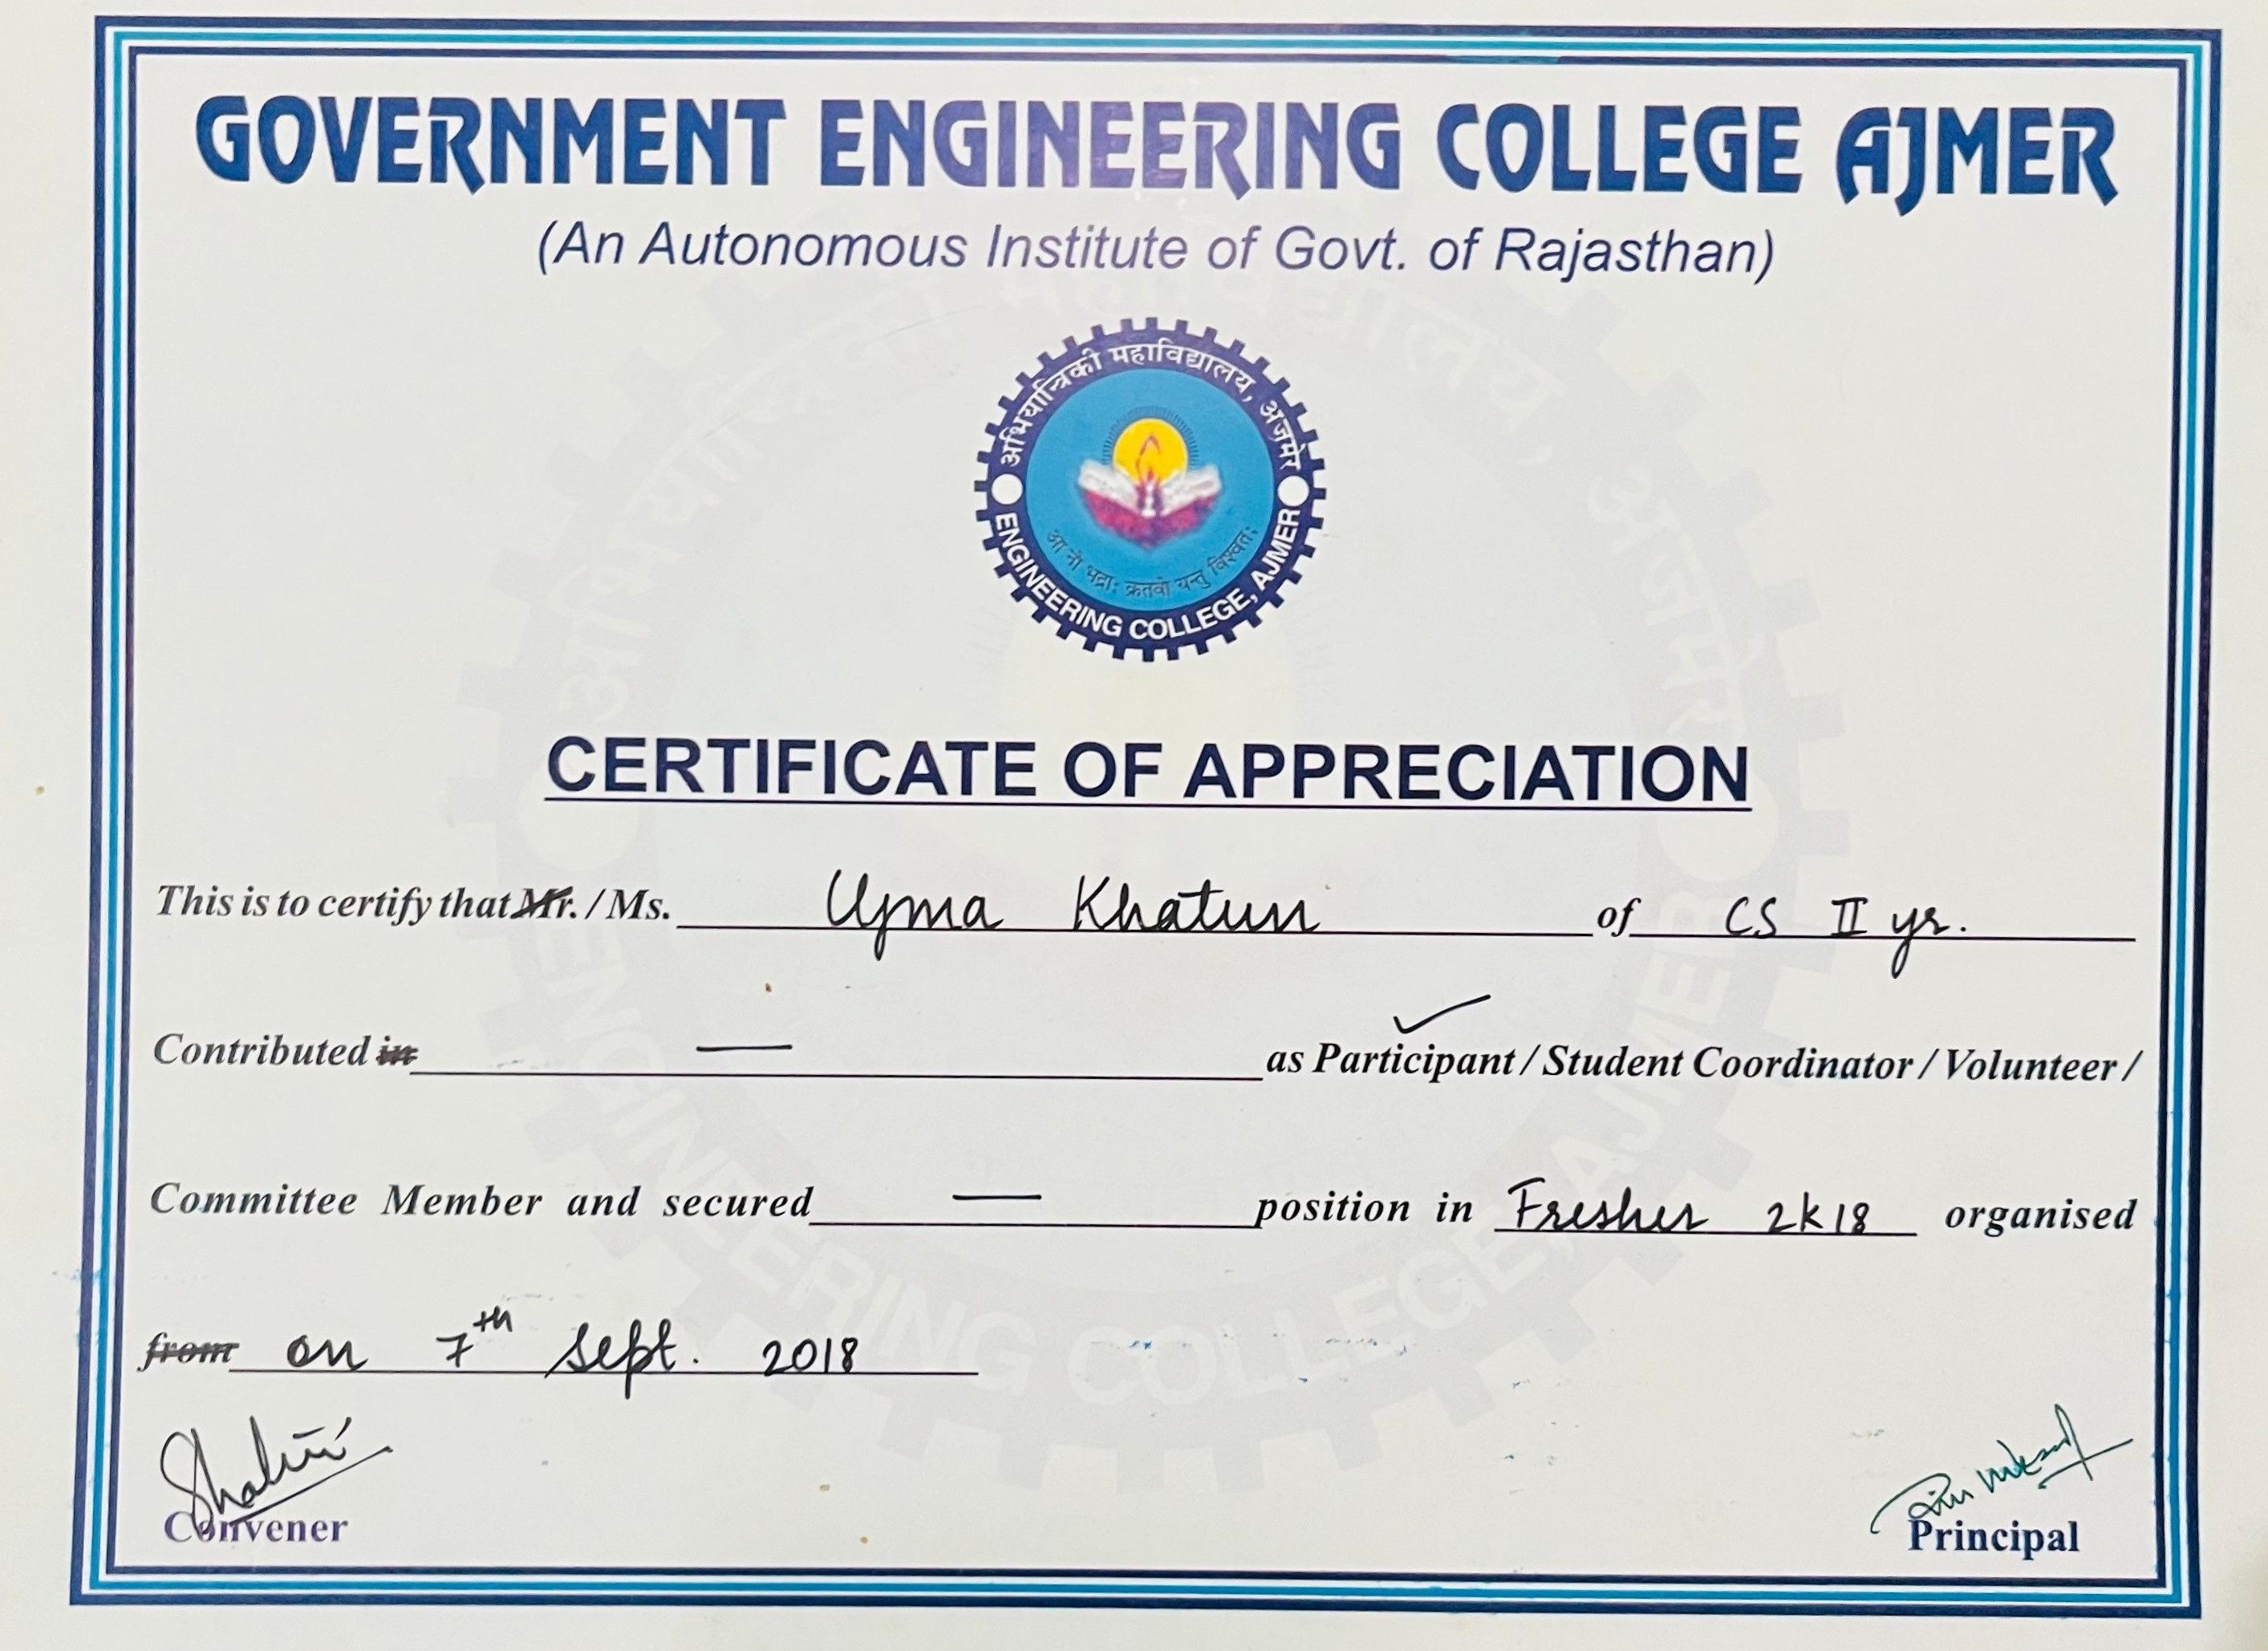 GOVERNMENT ENGINEERING COLLEGE AJMER
(An Autonomous Institute of Govt. of Rajasthan)
अभियान्त्रिकी महाविद्यालय, अजमेर
आ नो भद्रा: क्रतवो यन्तु विश्वत:
ENGINEERING COLLEGE, AJMER
CERTIFICATE OF APPRECIATION
This is to certify that Mr. / Ms. Uzma Khatun of CS II yr.
Contributed in — as Participant / Student Coordinator / Volunteer /
Committee Member and secured — position in Fresher 2k18 organised
from on 7th Sept. 2018
Convener
Principal